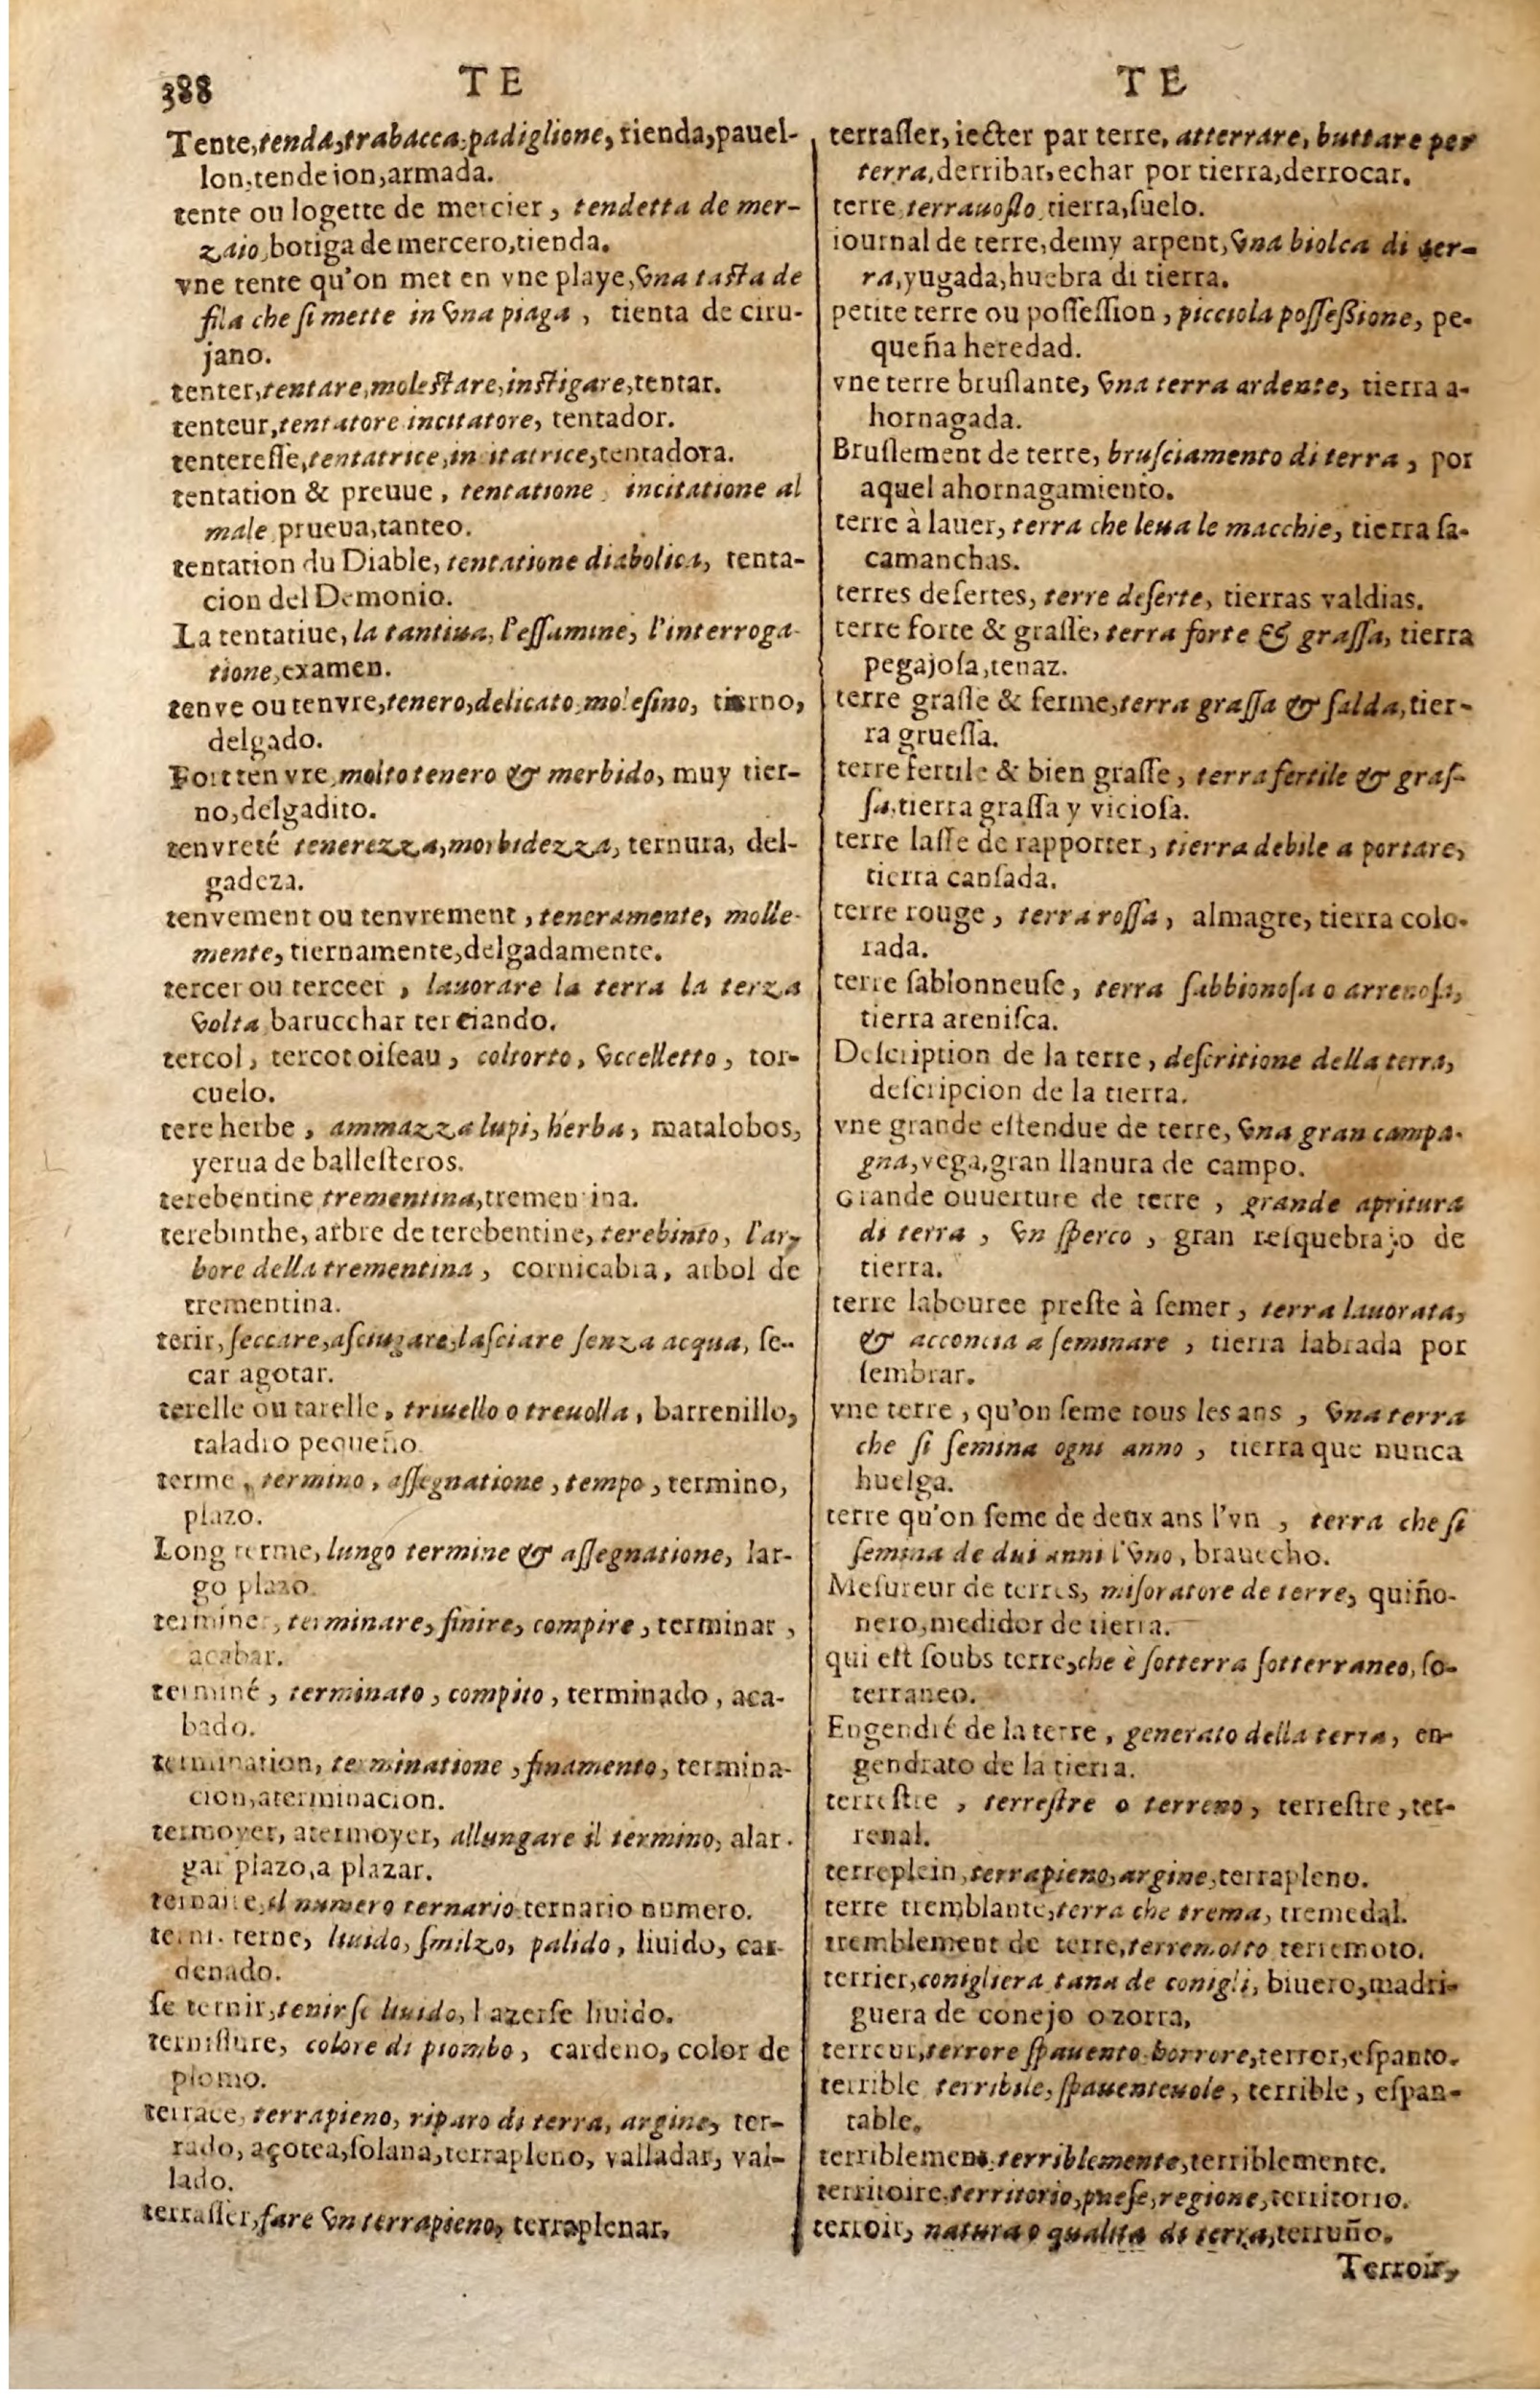 388
TE
TE
Tente, tenda, trabacca, padiglione, tienda, pauel-
lon, tendeion, armada.
tente ou logette de mercier, tendetta de mer-
zaio, botiga de mercero, tienda.
vne tente qu'on met en vne playe, vna tasta de
fila che ſi mette in vna piaga, tienta de ciru-
jano.
tenter, tentare, molestare, instigare, tentar.
tenteur, tentatore incitatore, tentador.
tentereſſe, tentatrice, incitatrice, tentadora.
tentation & preuue, tentatione, incitatione al
male, prueua, tanteo.
tentation du Diable, tentatione diabolica, tenta-
cion del Demonio.
La tentatiue, la tantiua, l'eſſamine, l'interroga-
tione, examen.
tenve ou tenvre, tenero, delicato, moleſino, tierno,
delgado.
Fort tenvre, molto tenero & merbido, muy tier-
no, delgadito.
tenvreté tenerezza, morbidezza, ternura, del-
gadeza.
tenvement ou tenvrement, teneramente, molle-
mente, tiernamente, delgadamente.
tercer ou terceer, lauorare la terra la terza
volta, barucchar terciando.
tercol, tercot oiſeau, coltorto, vccelletto, tor-
cuelo.
tere herbe, ammazza lupi, herba, matalobos,
yerua de balleſteros.
terebentine trementina, trementina.
terebinthe, arbre de terebentine, terebinto, l'ar-
bore della trementina, cornicabra, arbol de
trementina.
terir, ſeccare, aſciugare, laſciare ſenza acqua, ſe-
car agotar.
terelle ou tarelle, triuello o treuolla, barrenillo,
taladro pequeño.
terme, termino, aſſegnatione, tempo, termino,
plazo.
Long terme, lungo termine & aſſegnatione, lar-
go plazo.
terminer, terminare, finire, compire, terminar,
acabar.
terminé, terminato, compito, terminado, aca-
bado.
termination, terminatione, finamento, termina-
cion, aterminacion.
termoyer, atermoyer, allungare il termino, alar-
gar plazo, a plazar.
ternaire, il numero ternario, ternario numero.
terni, terne, liuido, ſmilzo, palido, liuido, car-
denado.
ſe ternir, tenirſe liuido, hazerſe liuido.
terniſſure, colore di piombo, cardeno, color de
plomo.
terrace, terrapieno, riparo di terra, argine, ter-
rado, açotea, ſolana, terrapleno, valladar, val-
lado.
terraſſer, fare vn terrapieno, terraplenar.
terraſſer, iecter par terre, atterrare, buttare per
terra, derribar, echar por tierra, derrocar.
terre, terrauoſlo, tierra, ſuelo.
iournal de terre, demy arpent, vna biolca di ter-
ra, yugada, huebra di tierra.
petite terre ou poſſeſſion, picciola poſſeſſione, pe-
queña heredad.
vne terre bruſlante, vna terra ardente, tierra a-
hornagada.
Bruſlement de terre, bruſciamento di terra, por
aquel ahornagamiento.
terre à lauer, terra che leua le macchie, tierra ſa-
camanchas.
terres deſertes, terre deſerte, tierras valdias.
terre forte & graſſe, terra forte & graſſa, tierra
pegajoſa, tenaz.
terre graſſe & ferme, terra graſſa & ſalda, tier-
ra grueſſa.
terre fertile & bien graſſe, terra fertile & graſ-
ſa, tierra graſſa y vicioſa.
terre laſſe de rapporter, tierra debile a portare,
tierra canſada.
terre rouge, terra roſſa, almagre, tierra colo-
rada.
terre ſablonneuſe, terra ſabbionoſa o arrenoſa,
tierra areniſca.
Deſcription de la terre, deſcritione della terra,
deſcripcion de la tierra.
vne grande eſtendue de terre, vna gran campa-
gna, vega, gran llanura de campo.
Grande ouuerture de terre, grande apritura
di terra, vn ſperco, gran reſquebrajo de
tierra.
terre labource preſte à ſemer, terra lauorata,
& acconcia a ſeminare, tierra labrada por
ſembrar.
vne terre, qu'on ſeme tous les ans, vna terra
che ſi ſemina ogni anno, tierra que nunca
huelga.
terre qu'on ſeme de deux ans l'vn, terra che ſi
ſemina de dui anni l'vno, brauecho.
Meſureur de terres, miſoratore de terre, quiño-
nero, medidor de tierra.
qui eſt ſoubs terre, che è ſotterra ſotterraneo, ſo-
terraneo.
Engendré de la terre, generato della terra, en-
gendrato de la tierra.
terreſtre, terreſtre o terreno, terreſtre, ter-
renal.
terreplein, terrapieno, argine, terrapleno.
terre tremblante, terra che trema, tremedal.
tremblement de terre, terremotto terremoto.
terrier, conigliera, tana de conigli, biuero, madri-
guera de conejo o zorra,
terreur, terrore ſpauento, horrore, terror, eſpanto.
terrible terribile, ſpauenteuole, terrible, eſpan-
table.
terriblement, terriblemente, terriblemente.
territoire, territorio, paeſe, regione, territorio.
terroir, natura o qualita di terra, terruño.
Terroir,